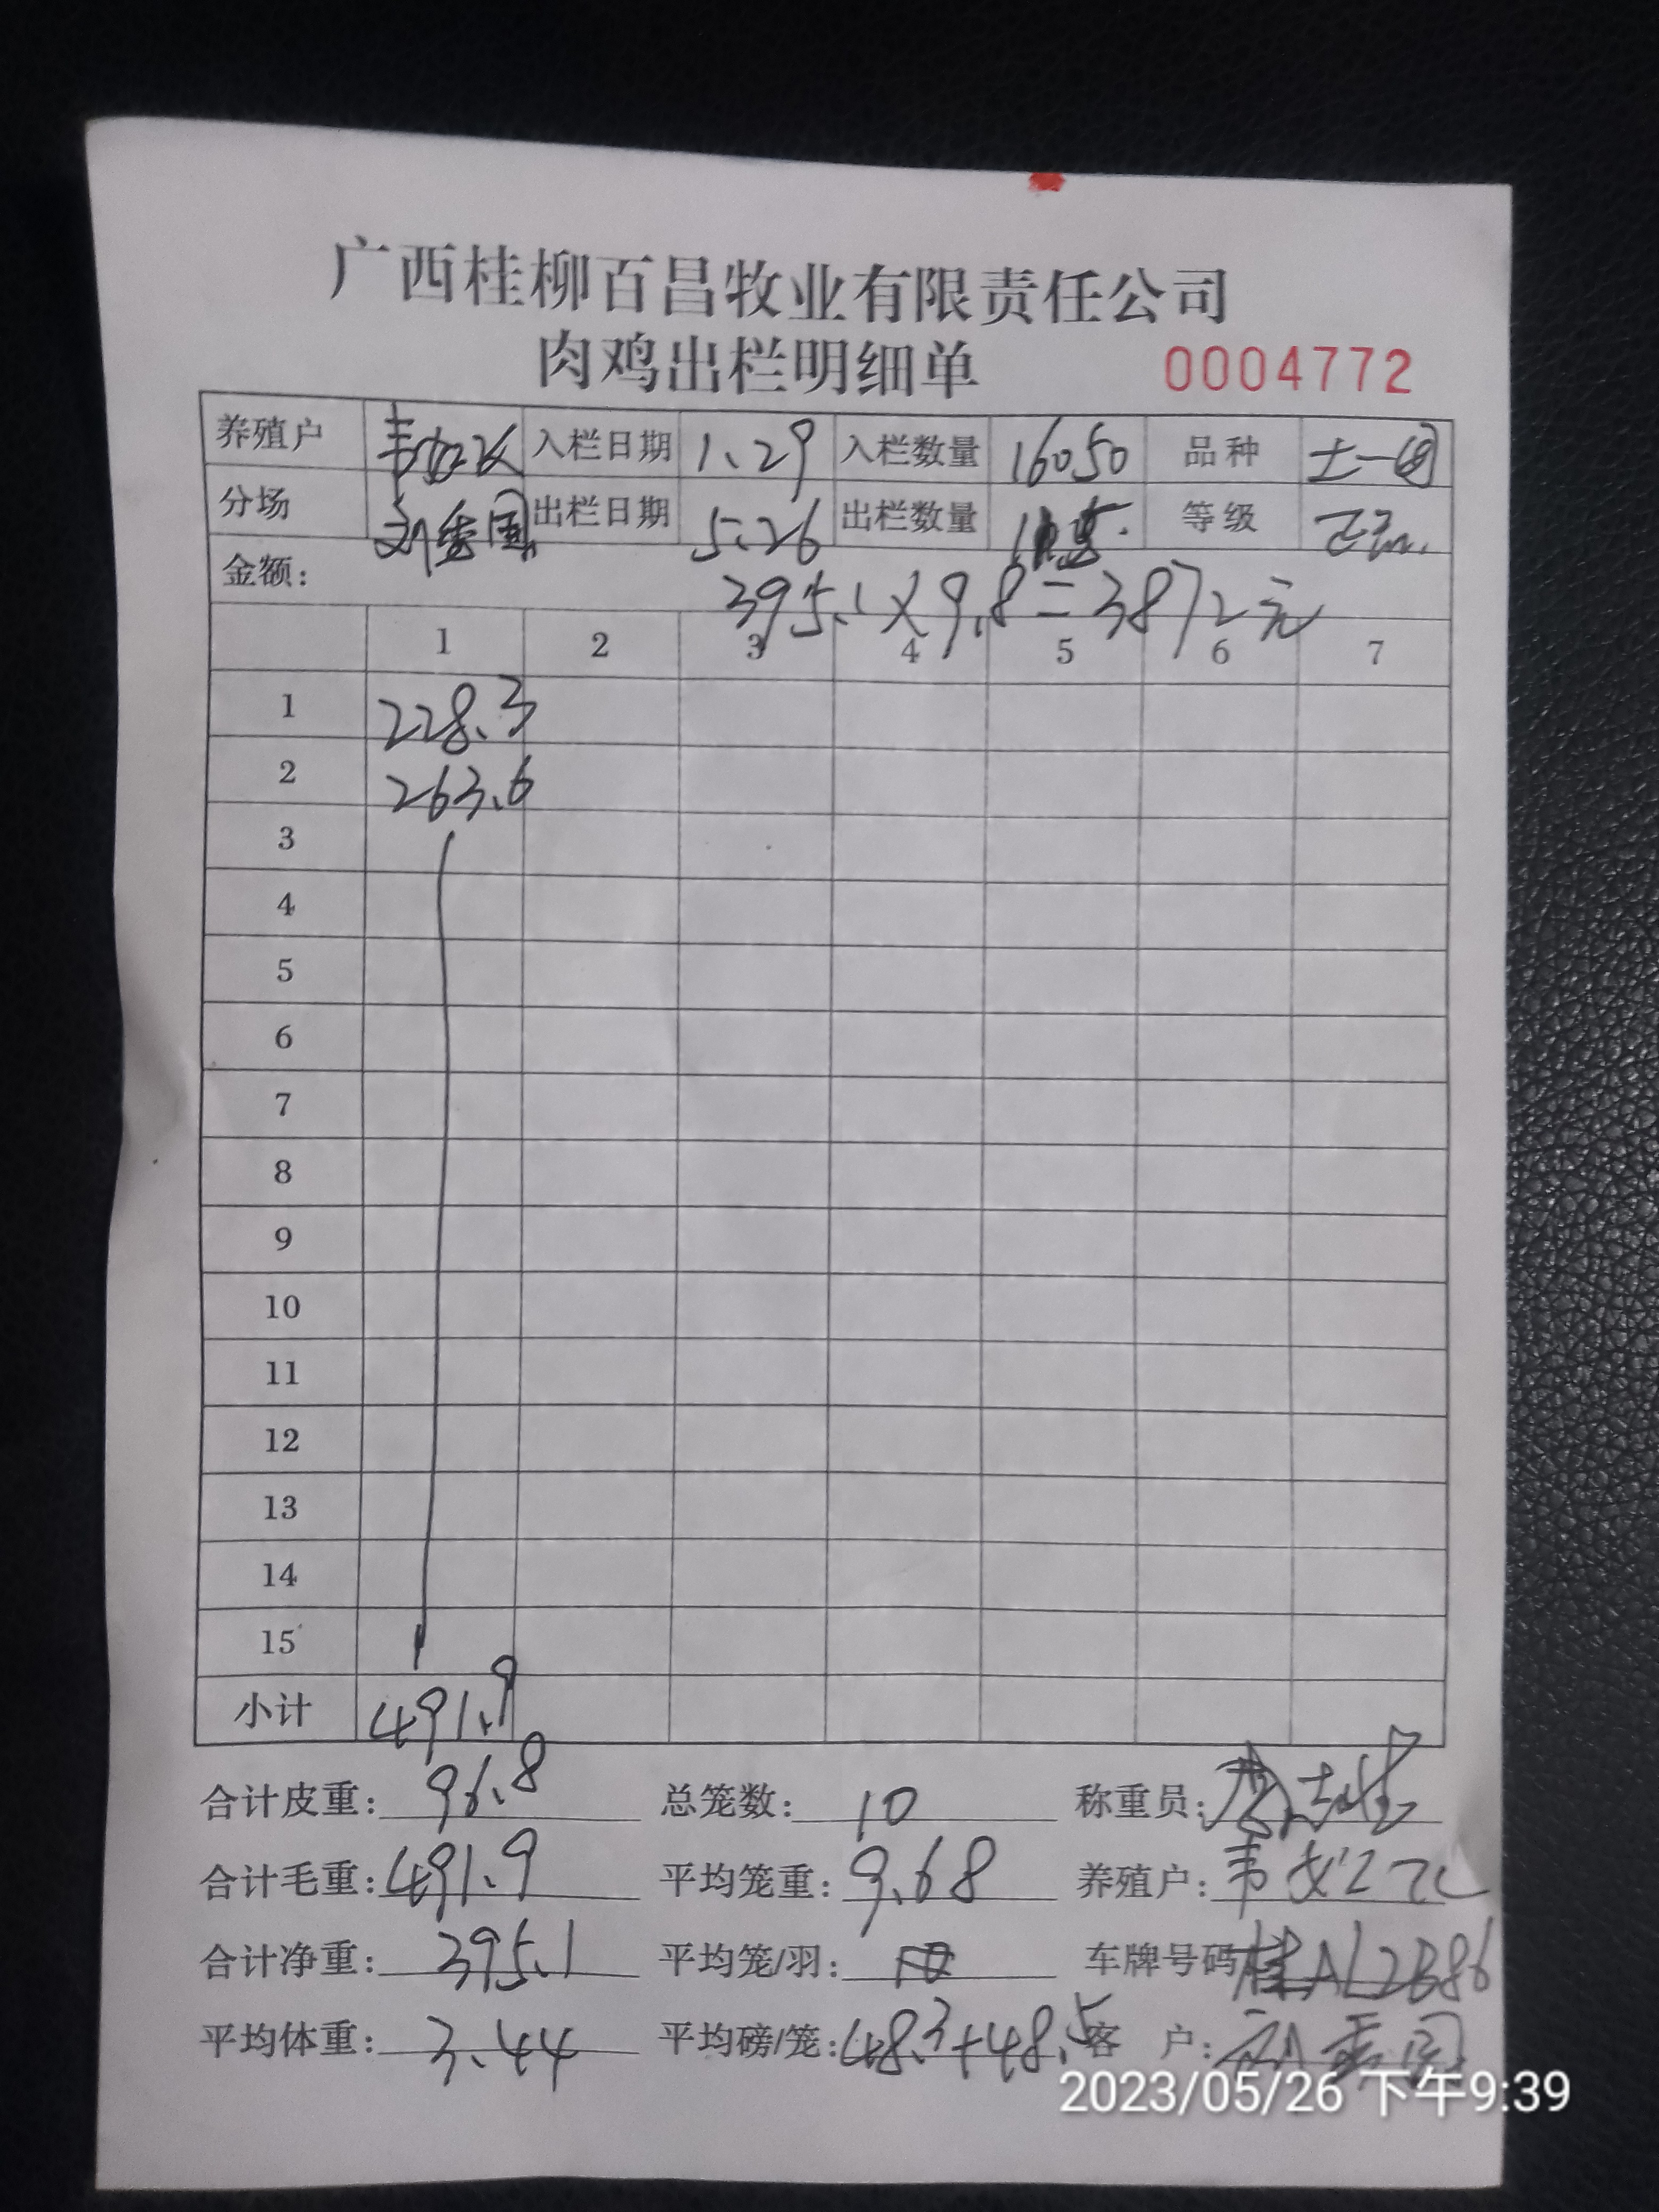 广西桂柳百昌牧业有限责任公司
肉鸡出栏明细单 0004772
养殖户 入栏日期 1.29 入栏数量 16050 品种 土一
分场 刘雲国 出栏日期 5.26 出栏数量 等级 正品
金额: 395.1×9.8=3872元
1 2 3 4 5 6 7
1 228.3
2 263.6
3
4
5
6
7
8
9
10
11
12
13
14
15
小计 491.9
合计皮重: 96.8 总笼数: 10 称重员:
合计毛重: 491.9 平均笼重: 9.68 养殖户: 韦
合计净重: 395.1 平均笼/羽: 车牌号码 桂AL2B86
平均体重: 3.44 平均磅/笼: 48.3+48.5 客 户:
2023/05/26 下午9:39